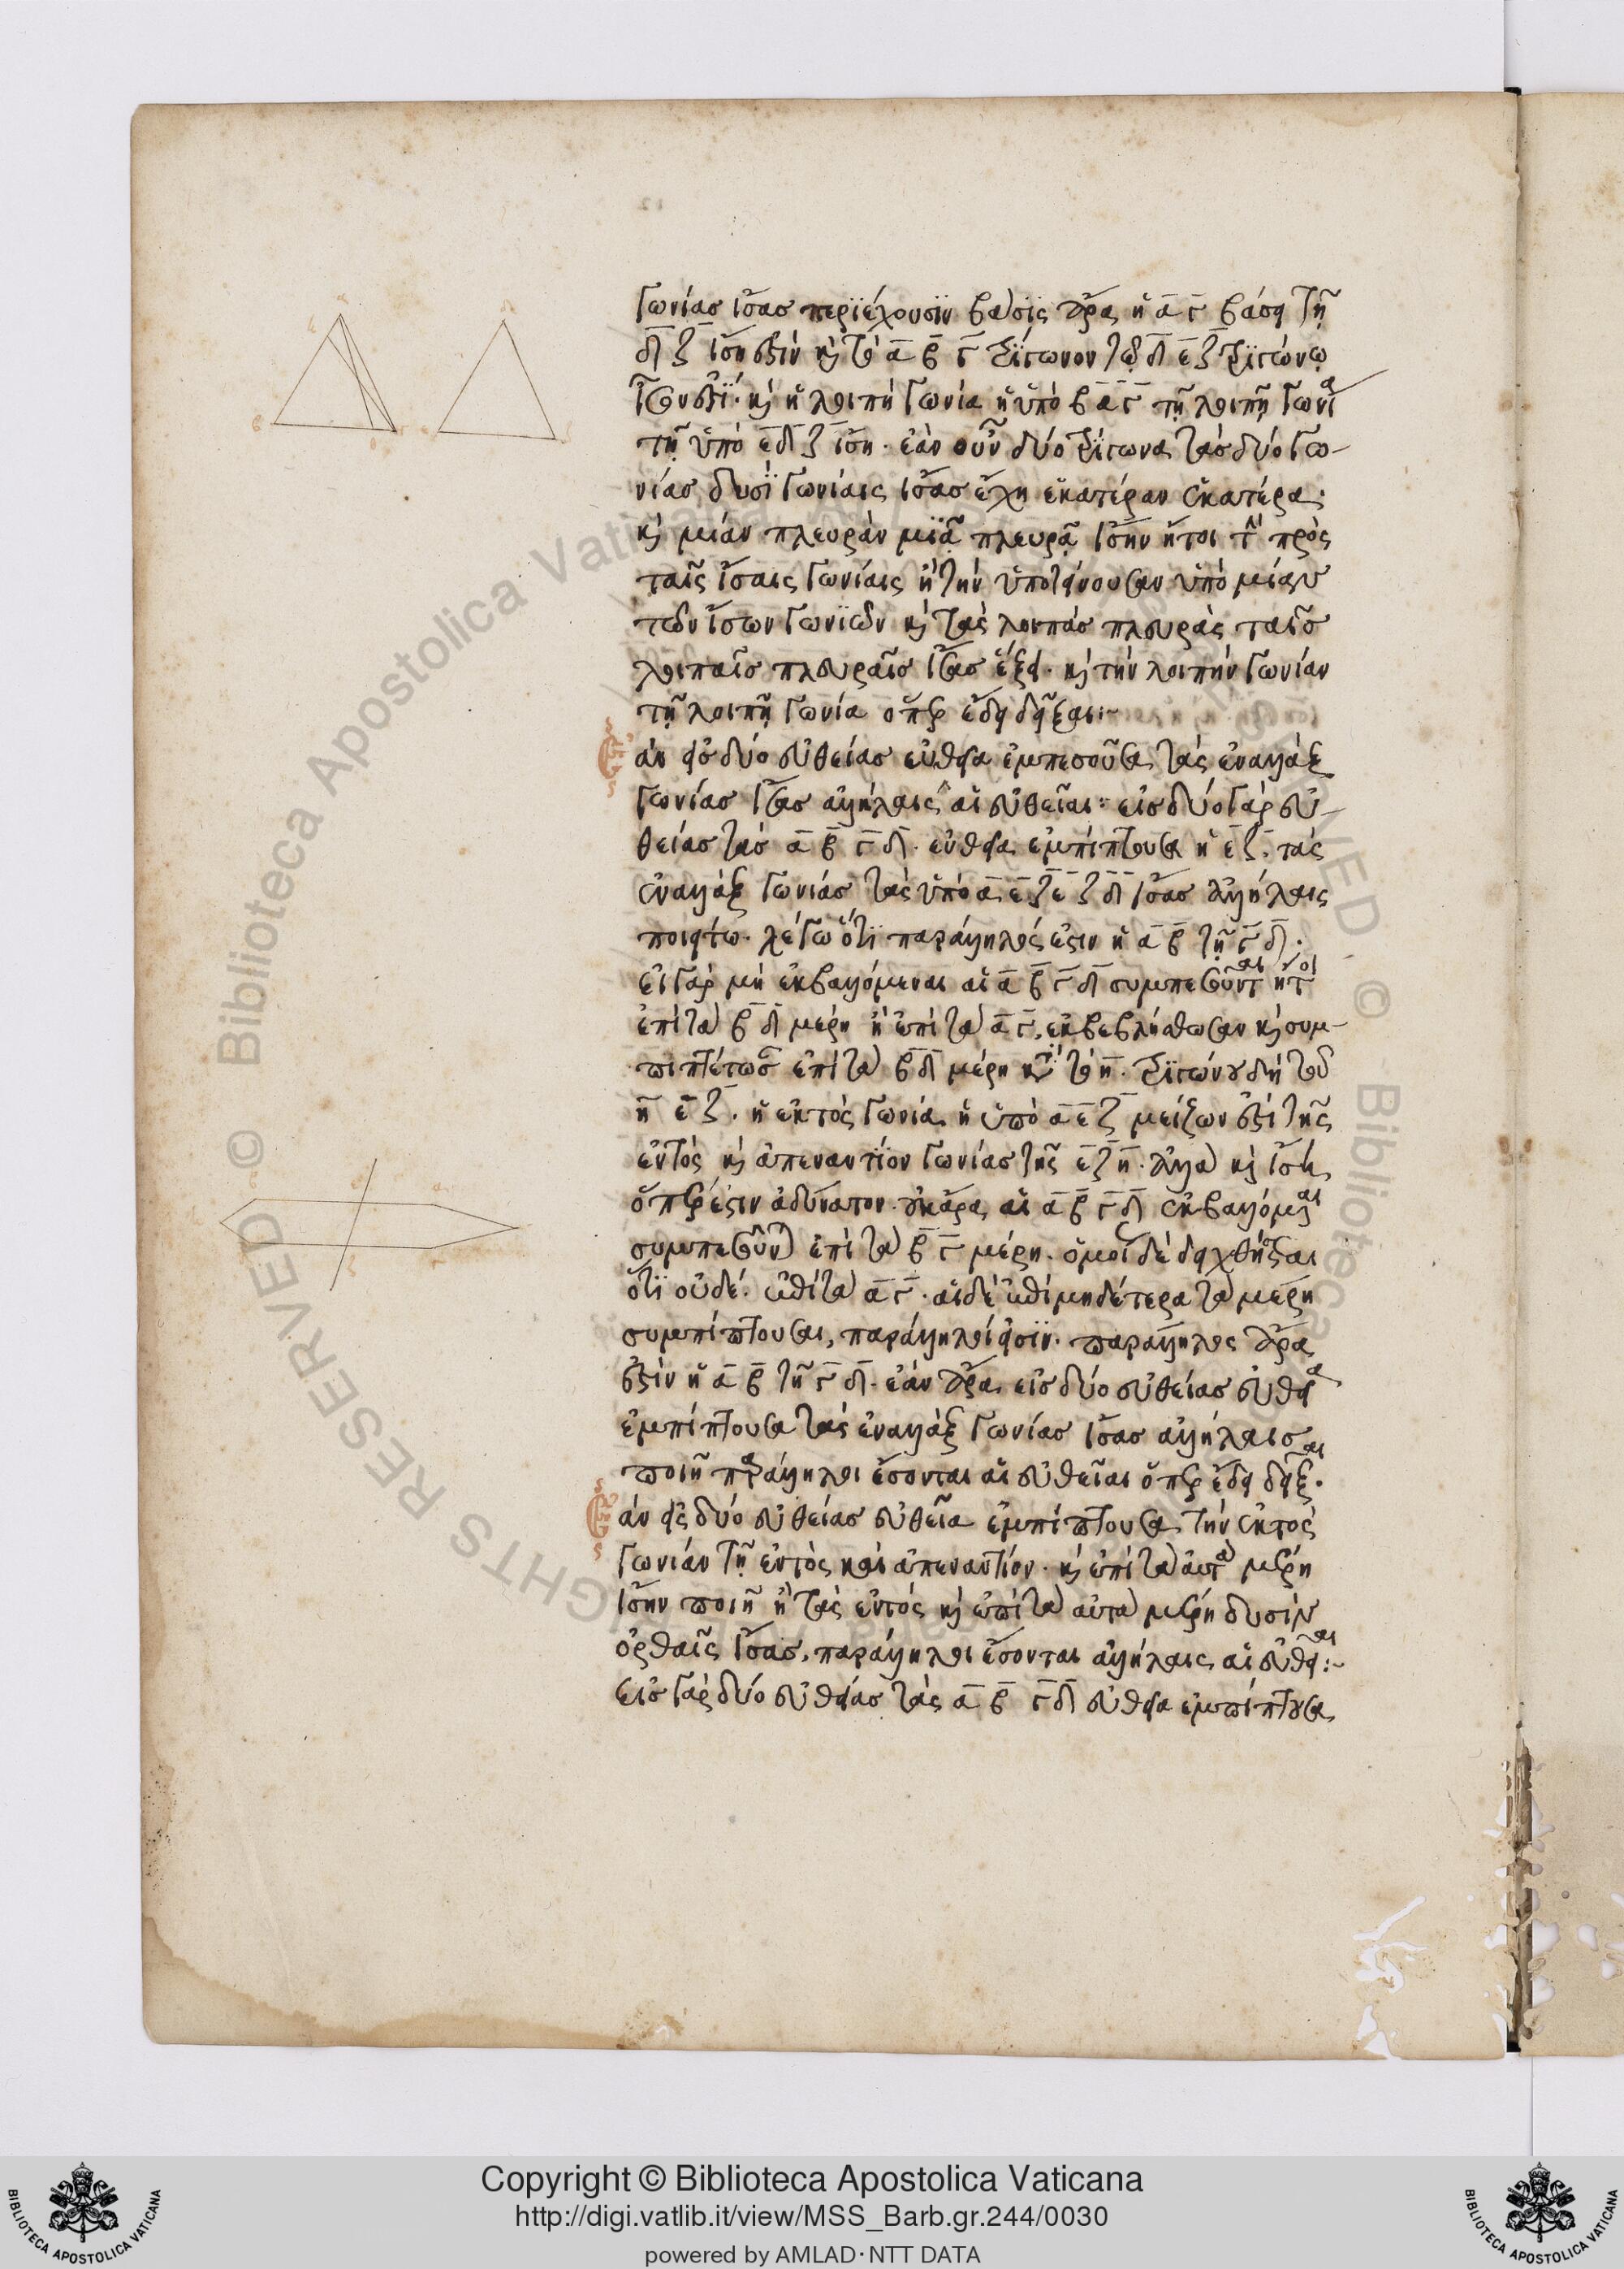 γωνίας ἴσας περϊέχουσϊν βάσϊς ἄρα ἡ α γ βάσει τῆ
δ ζ ἴση ἐστὶν καὶ τὸ α β γ τρΐγωνον τῷ δ ε ζ τρϊγώνω
ἴσον ἐστΐ· καὶ ἡ λοιπὴ γωνία ἡ ὑπὸ β α γ τῇ λοιπῇ γωνία
τῇ ὑπὸ ε δ ζ ἴση· ἐὰν οὖν δύο τρίγωνα τὰς δύο γω-
νίας δυσΐ γωνίαις ἴσας ἔχη ἑκατέραν ἑκατέρα·
καὶ μίαν πλευρὰν μϊᾷ πλευρᾷ ἴσην ἤτοι τὴν πρὸς
ταῖς ἴσαις γωνίαις ἢ τὴν ὑποτείνουσαν ὑπὸ μίαν
τῶν ἴσων γωνϊῶν καὶ τὰς λοιπὰς πλευρὰς ταῖς
λοιπαῖς πλευραῖς ἴσας ἕξει· καὶ τὴν λοιπὴν γωνίαν
τῇ λοιπῇ γωνία ὅπερ ἔδει δεῖξαι:~
Ἐὰν εἰς δύο εὐθείας εὐθεῖα ἐμπεσοῦσα τὰς ἐναλλὰξ
γωνίας ἴσας ἀλλήλαις αἱ εὐθεῖαι: εἰς δύο γὰρ εὐ-
θείας τὰς α β γ δ· εὐθεῖα ἐμπίπτουσα ἡ ε ζ. τὰς
ἐναλλὰξ γωνίας τὰς ὑπὸ α ε ζ ε ζ δ ἴσας ἀλλήλαις
ποιείτω· λέγω ὅτϊ παράλληλός ἐστιν ἡ α β τῇ γ δ·
εἰ γὰρ μὴ ἐκβαλλόμεναι αἱ α β γ δ συμπεσοῦνται ἤτοι
ἐπὶ τὰ β δ μέρη ἢ ἐπὶ τὰ α γ, ἐκβεβλήσθωσαν καὶ συμ-
πιπτέτωσαν ἐπὶ τὰ β δ μέρη κατὰ τὸ η· τρϊγώνου δὴ τοῦ
η ε ζ· ἡ ἐκτὸς γωνία ἡ ὑπὸ α ε ζ μείζων ἐστὶ τῆς
ἐντὸς καὶ ἀπεναντΐον γωνίας τῆς ε ζ η· ἀλλὰ καὶ ἴση
ὅπερ ἐστὶν ἀδύνατον· οὐκ ἄρα αἱ α β γ δ ἐκβαλλόμεναι
συμπεσοῦνται ἐπὶ τὰ β γ μέρη· ὁμοίως δὲ δειχθήσεται
ὅτϊ οὐδὲ· ἐπὶ τὰ α γ· αἱ δὲ ἐπὶ μηδέτερα τὰ μέρη
συμπίπτουσαι, παράλληλοί εἰσϊν· παράλληλος ἄρα
ἐστὶν ἡ α β τῇ γ δ· ἐὰν ἄρα εἰς δύο εὐθείας εὐθεῖα
ἐμπίπτουσα τὰς ἐναλλὰξ γωνίας ἴσας ἀλλήλαις
ποιῆ παράλληλοι ἔσονται αἱ εὐθεῖαι ὅπερ ἔδει δεῖξαι·
Ἐὰν εἰς δύο εὐθείας εὐθεῖα ἐμπίπτουσα τὴν ἐκτὸς
γωνίαν τῇ ἐντὸς καὶ ἀπεναντίον· καὶ ἐπὶ τὰ αὐτὰ μέρη
ἴσην ποιῆ ἢ τὰς ἐντὸς καὶ ἐπὶ τὰ αὐτὰ μέρη δυσὶν
ὀρθαῖς ἴσας, παράλληλοι ἔσονται ἀλλήλαις αἱ εὐθεῖαι:~
εἰς γὰρ δύο εὐθείας τὰς α β γ δ εὐθεῖα ἐμπίπτουσα
Copyright © Biblioteca Apostolica Vaticana
http://digi.vatlib.it/view/MSS_Barb.gr.244/0030
powered by AMLAD·NTT DATA